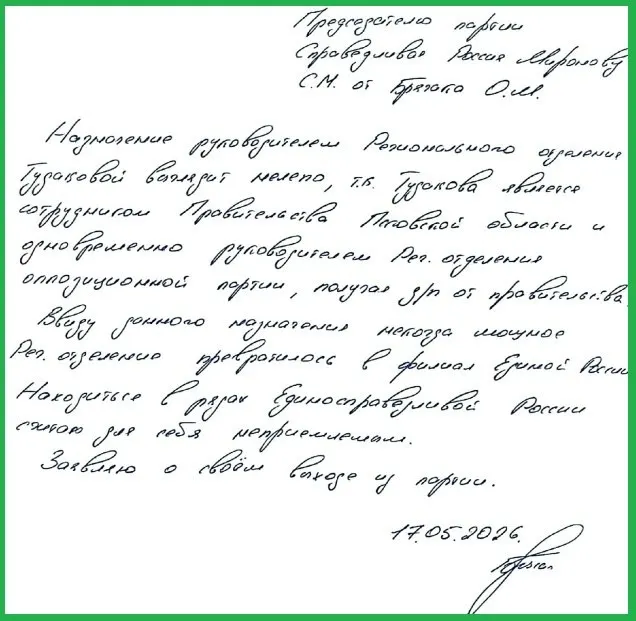 Председателю партии
Справедливая Россия Миронову
С.М. от Брячака О.М.
Назначение руководителем Регионального отделения
Тудаковой выглядит нелепо, т.к. Тудакова является
сотрудником Правительства Псковской области и
одновременно руководителем Рег. отделения
оппозиционной партии, получая з/п от правительства.
Ввиду данного назначения некогда мощное
Рег. отделение превратилось в филиал Единой России
Находиться в рядах Единосправедливой России
считаю для себя неприемлемым.
Заявляю о своём выходе из партии.
17.05.2026.